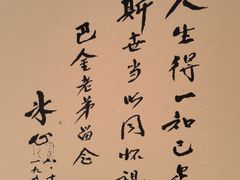 人生得一知己足
斯世当以同怀视
巴金老弟留念
冰心